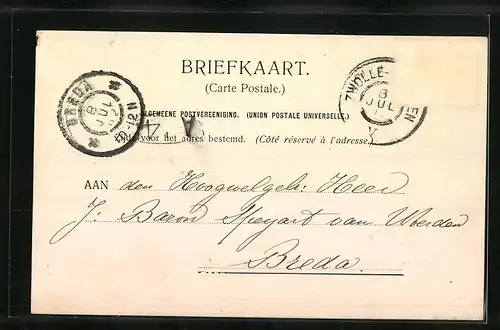 BRIEFKAART.
(Carte Postale.)
ALGEMEENE POSTVEREENIGING. (UNION POSTALE UNIVERSELLE)
Zijde voor het adres bestemd. (Côté réservé à l'adresse.)
AAN den Hoogwelgeb: Heer
J: Baron Speyart van Woerden
Breda.
BREDA
8 JUL
8-12 N
ZWOLLE
EN
8
JUL
V